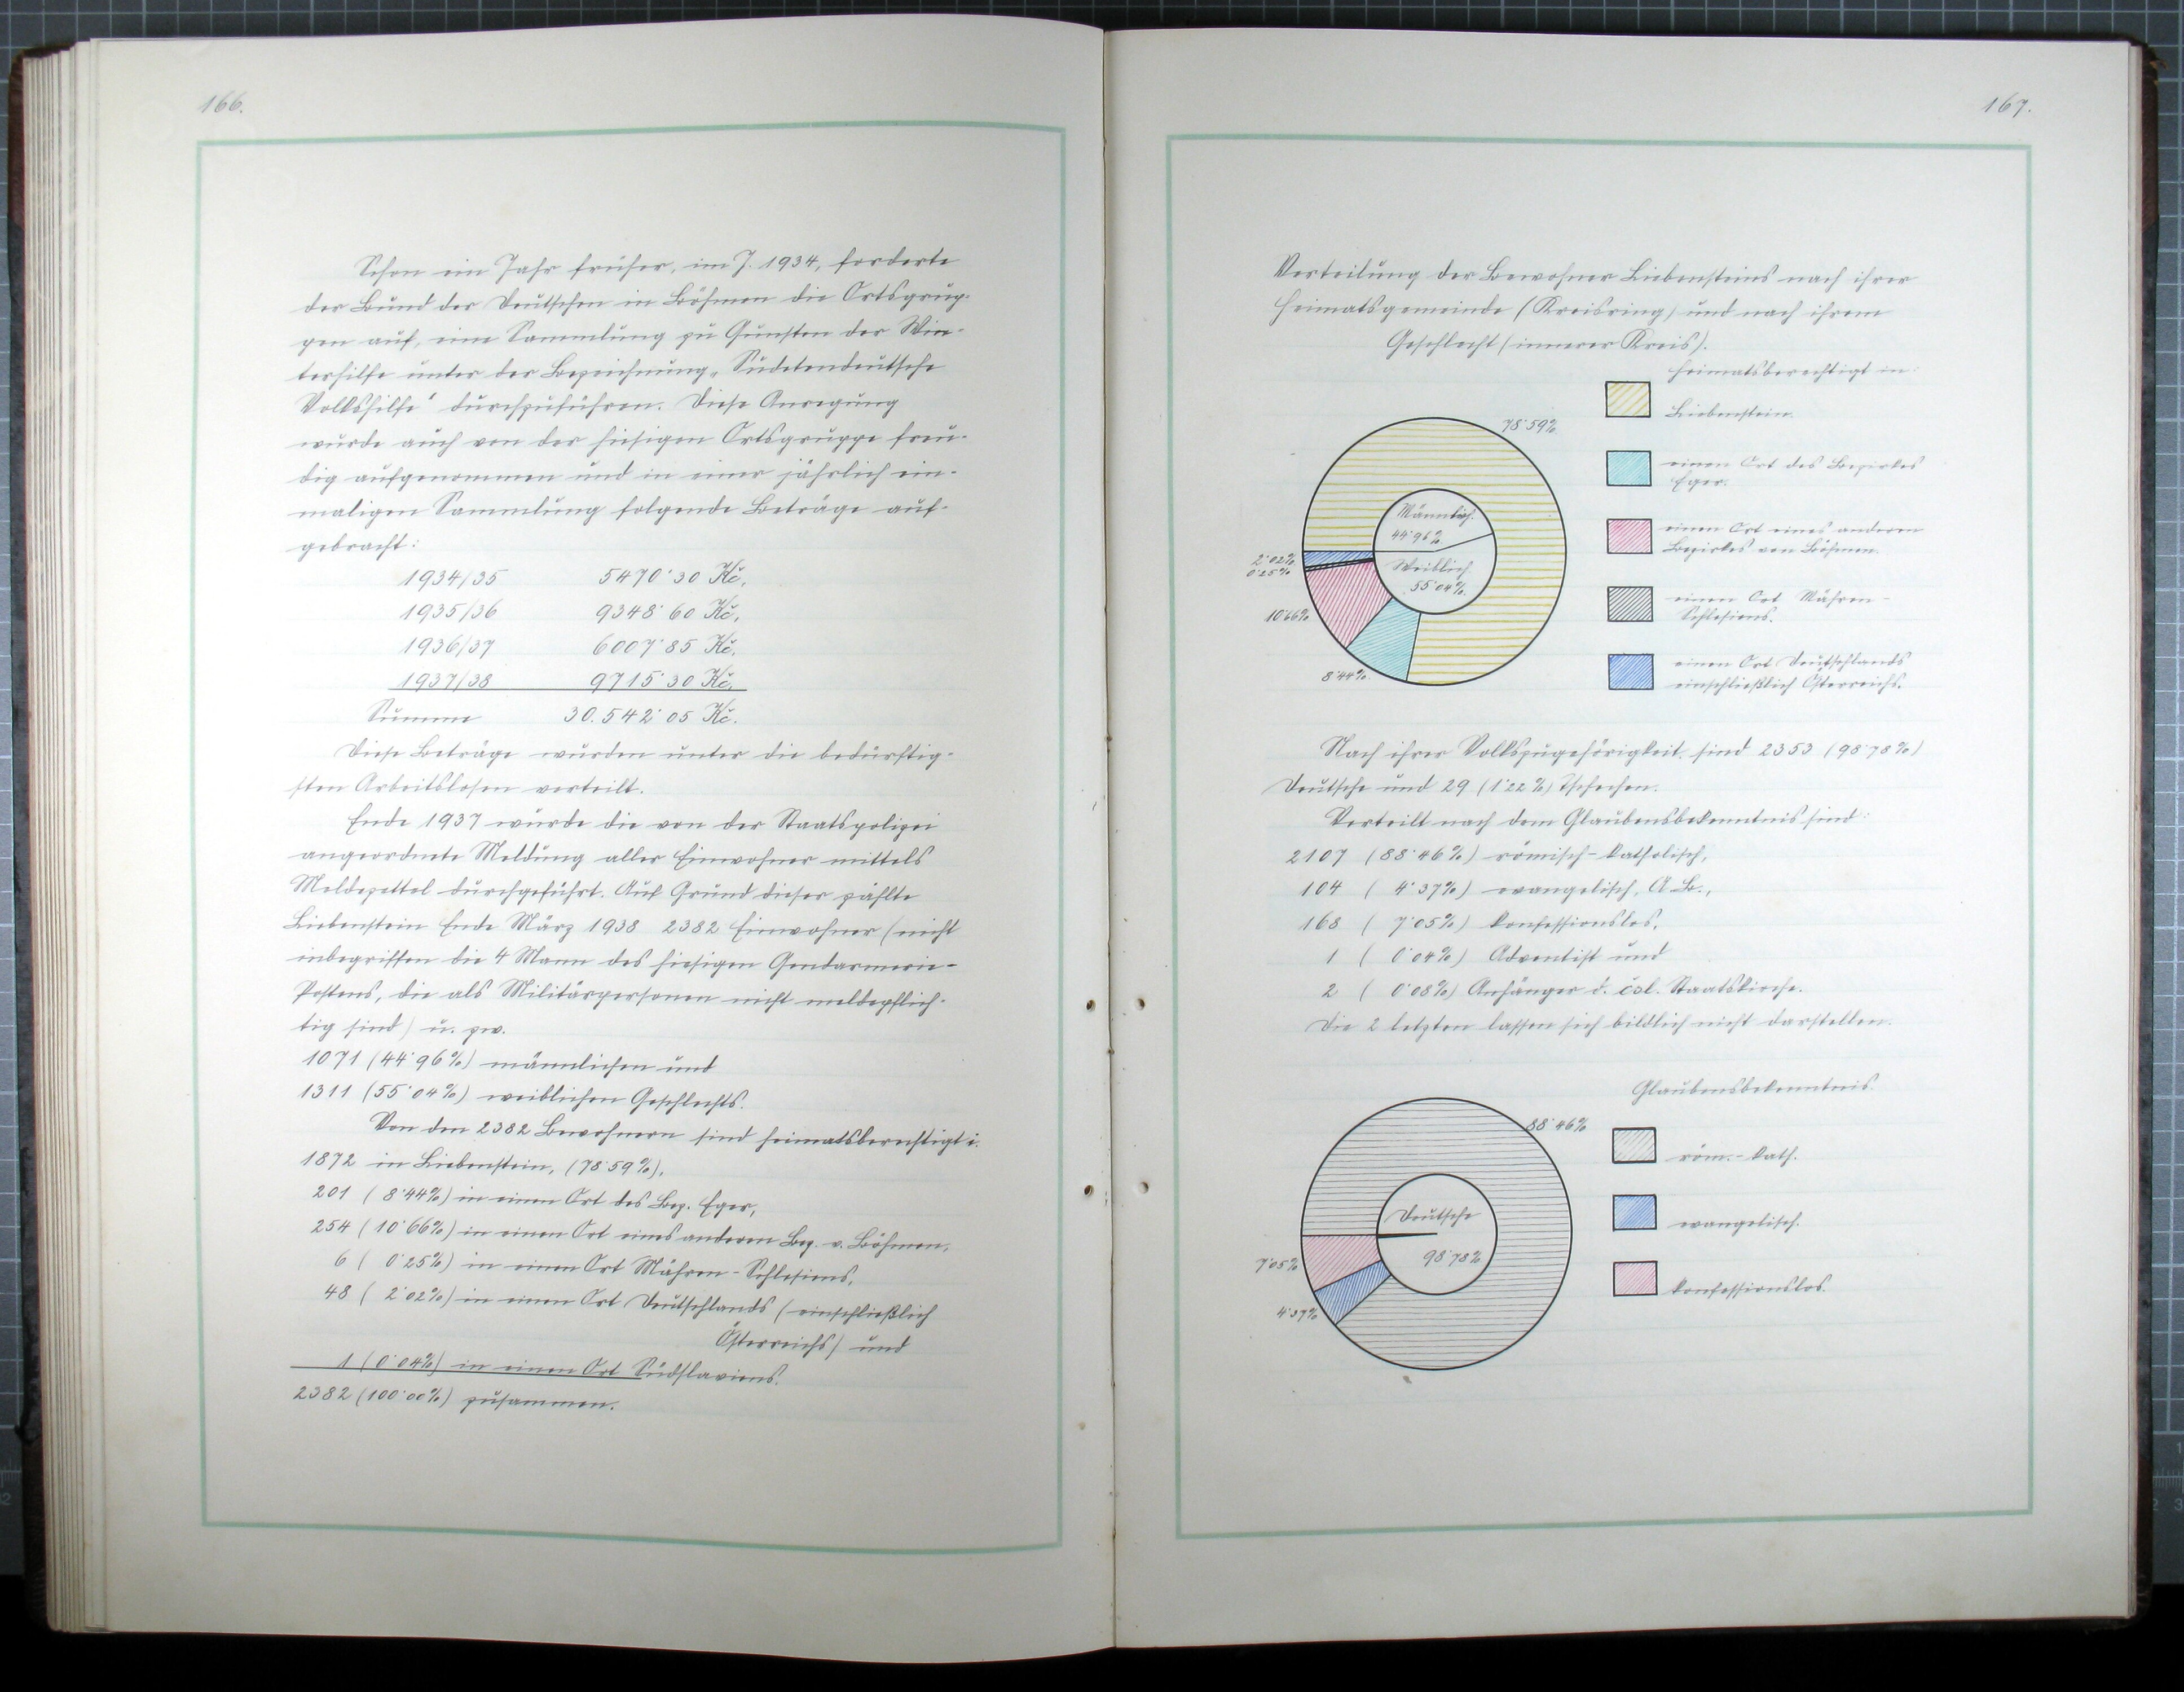 166.
Schon ein Jahr früher, im J. 1934, forderte
der Bund der Deutschen in Böhmen die Ortsgrup-
pen auf, eine Sammlung zu Gunsten der Win-
terhilfe unter der Bezeichnung „Sudetendeutsche
Volkshilfe“ durchzuführen. Diese Anregung
wurde auch von der hiesigen Ortsgruppe freu-
dig aufgenommen und in einer jährlich ein-
maligen Sammlung folgende Beträge auf-
gebracht:
1934/35 5470˙30 Kč,
1935/36 9348˙60 Kč,
1936/37 6007˙85 Kč,
1937/38 9715˙30 Kč,
Summe 30.542˙05 Kč.
Diese Beträge wurden unter die bedürftig-
sten Arbeitslosen verteilt.
Ende 1937 wurde die von der Staatspolizei
angeordnete Meldung aller Einwohner mittels
Meldezettel durchgeführt. Auf Grund dieser zählte
Liebenstein Ende März 1938 2382 Einwohner (nicht
inbegriffen die 4 Mann des hiesigen Gendarmerie-
Postens, die als Militärpersonen nicht meldepflich-
tig sind) u. zw.
1071 (44˙96%) männlichen und
1311 (55˙04%) weiblichen Geschlechts.
Von den 2382 Bewohnern sind heimatsberechtigt i.
1872 in Liebenstein, (78˙59%),
201 (8˙44%) in einen Ort des Bez. Eger,
254 (10˙66%) in einen Ort eines anderen Bez. v. Böhmen,
6 (0˙25%) in einen Ort Mähren-Schlesiens,
48 (2˙02%) in einen Ort Deutschlands (einschließlich
Österreichs) und
1 (0˙04%) in einen Ort Südslaviens.
2382 (100˙00%) zusammen.
167.
Verteilung der Bewohner Liebensteins nach ihrer
Heimatsgemeinde (Kreisring) und nach ihrem
Geschlecht (innerer Kreis).
Heimatsberechtigt in:
Liebenstein.
einen Ort des Bezirkes
Eger.
einen Ort eines anderen
Bezirkes von Böhmen.
einen Ort Mähren-
Schlesiens.
einen Ort Deutschlands
einschließlich Österreichs.
78˙59%
Männlich.
44˙96%
Weiblich
55˙04%.
2˙02%
0˙25%
10˙66%
8˙44%
Nach ihrer Volkszugehörigkeit sind 2353 (98˙78%)
Deutsche und 29 (1˙22%) Tschechen.
Verteilt nach dem Glaubensbekenntnis sind:
2107 (88˙46%) römisch-katholisch,
104 (4˙37%) evangelisch, A.B.,
168 (7˙05%) konfessionslos,
1 (0˙04%) Adventist und
2 (0˙08%) Anhänger d. čsl. Staatskirche.
Die 2 letzten lassen sich bildlich nicht darstellen.
Glaubensbekenntnis.
röm.-kath.
evangelisch.
konfessionslos.
88˙46%
Deutsche
98˙78%
7˙05%
4˙37%